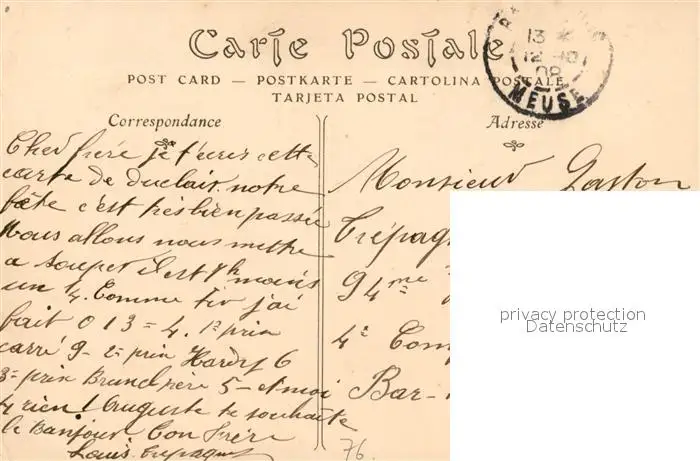 Carte Postale
POST CARD — POSTKARTE — CARTOLINA POSTALE
TARJETA POSTAL
13
12 - 10
08
MEUSE
Correspondance
Cher frère je t'écris cette
carte de duclair notre
fête c'est très bien passée
Nous allons nous mettre
a soupet il est 7h moins
un ¼. Comme tir j'ai
fait 0 1 3 = 4. 1er prix
carré 9 - 2e prix Hardy 6
3e prix 5 - et moi
4 rien ! Auguste te souhaite
le Bonjour Ton frère
Louis
Adresse
Monsieur Gaston
94me
4e Com
Bar-
privacy protection
Datenschutz
76